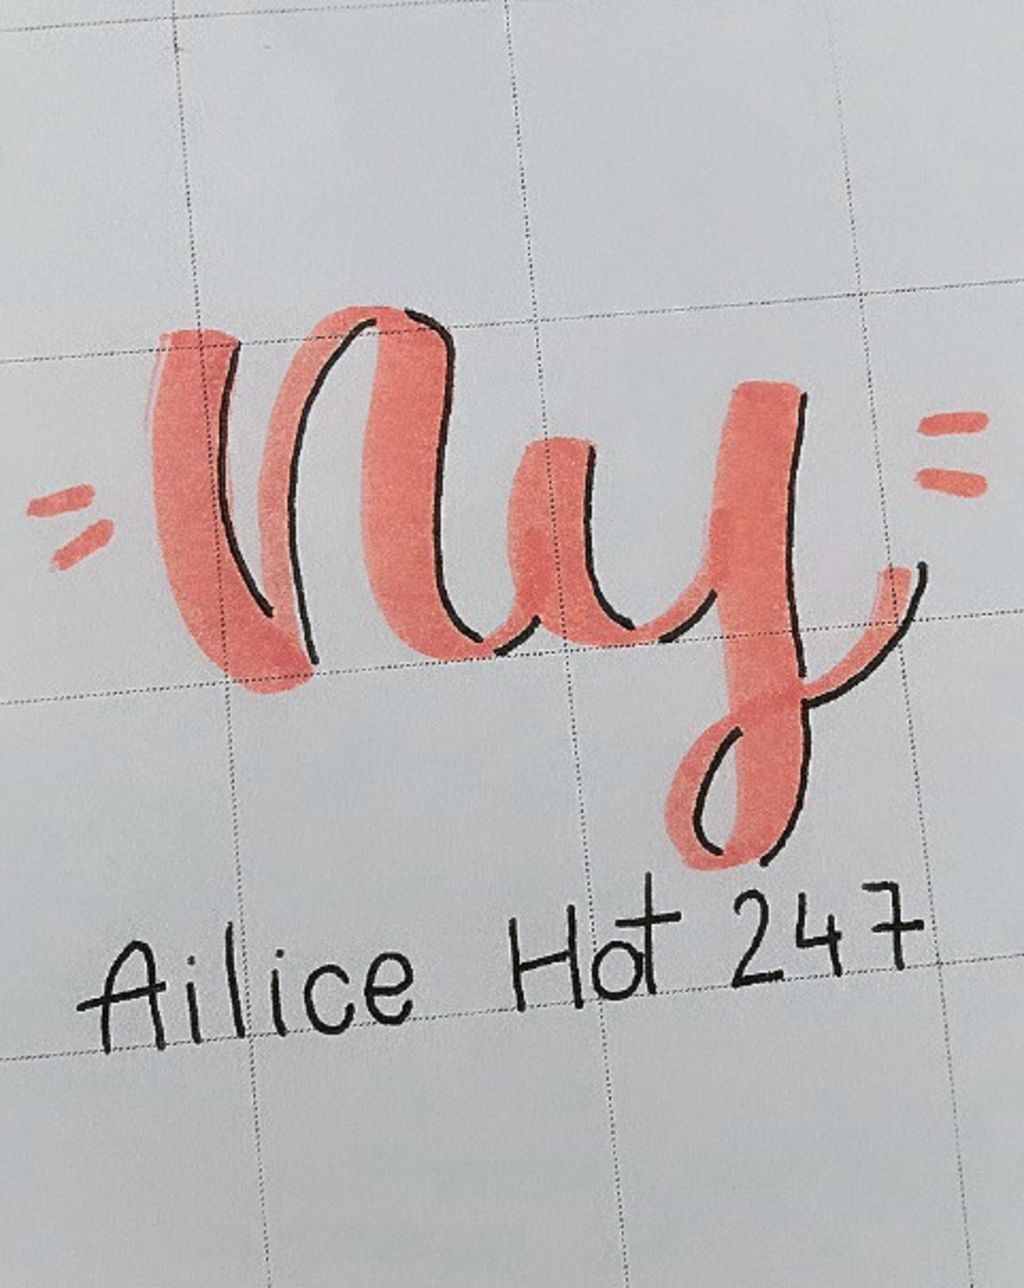 Ny
Ailice Hot 247